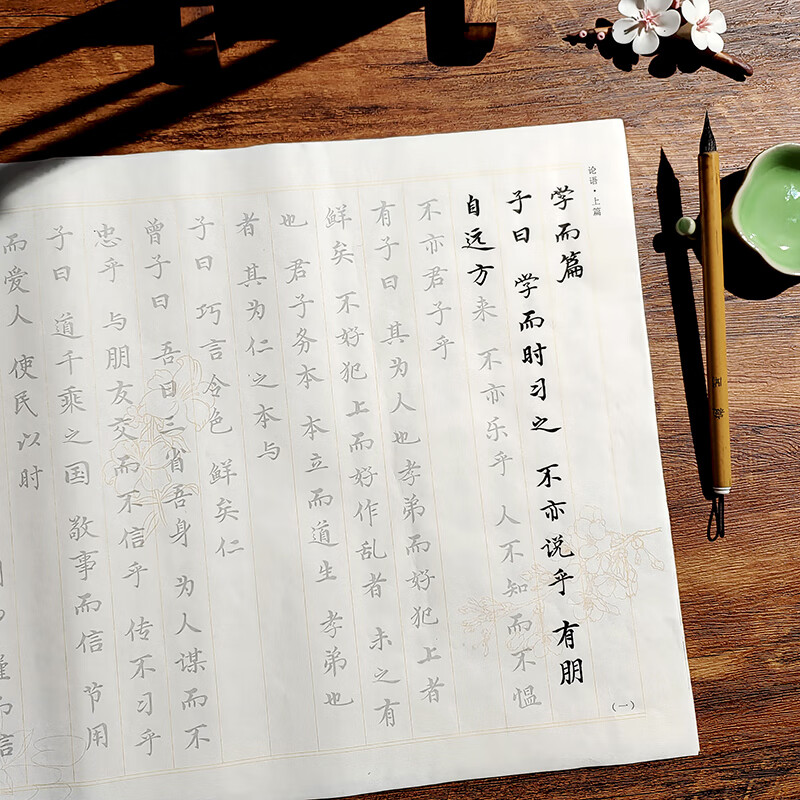 论语·上篇
学而篇
子曰 学而时习之 不亦说乎 有朋
自远方来 不亦乐乎 人不知而不愠
不亦君子乎
有子曰 其为人也孝弟而好犯上者
鲜矣 不好犯上而好作乱者 未之有
也 君子务本 本立而道生 孝弟也
者 其为仁之本与
子曰 巧言令色 鲜矣仁
曾子曰 吾日三省吾身 为人谋而不
忠乎 与朋友交而不信乎 传不习乎
子曰 道千乘之国 敬事而信 节用
而爱人 使民以时
而信
(一)